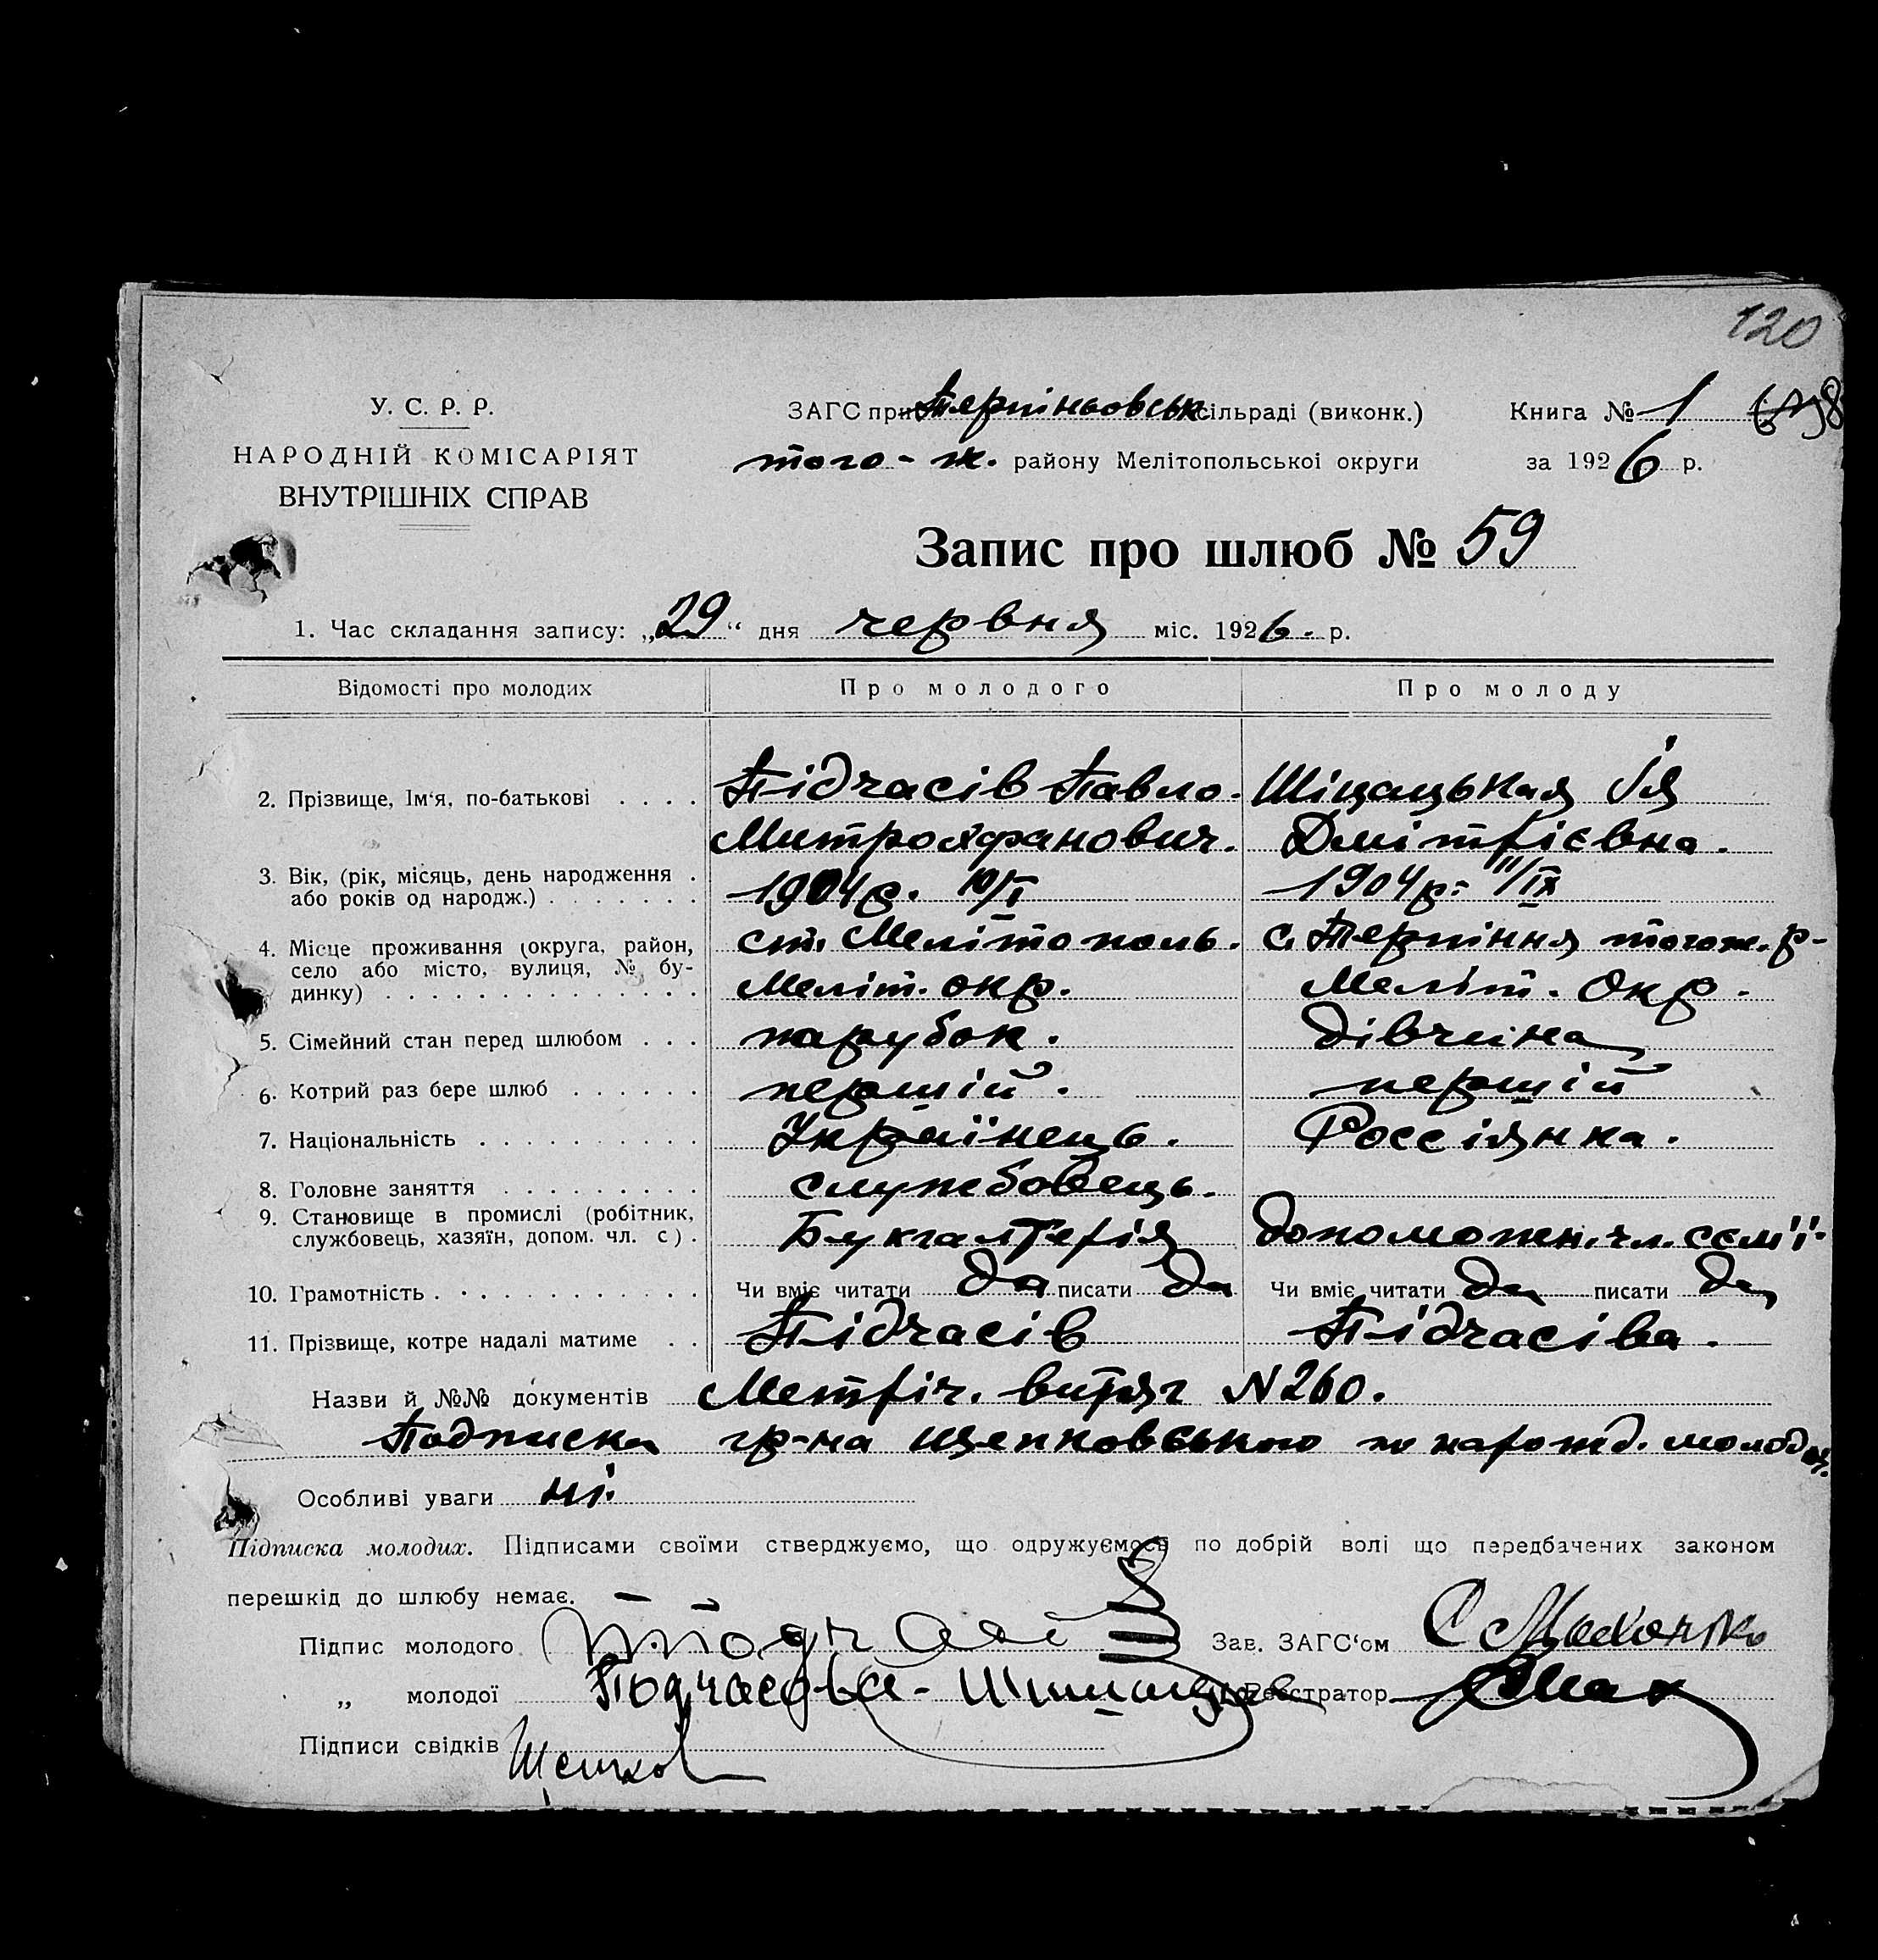 120
У. С. Р. Р.
НАРОДНІЙ КОМІСАРІЯТ
ВНУТРІШНІХ СПРАВ
ЗАГС при Терпіньовськ сільраді (виконк.)
того-ж. району Мелітопольської округи
Книга № 1
за 1926 р.
Запис про шлюб № 59
1. Час складання запису: „29“ дня червня міс. 1926. р.
Відомості про молодих Про молодого Про молоду
2. Прізвище, Ім‘я, по-батькові . . . . Підчасів Павло. Шіцацькая Ія
Митрофанович. Дмітрієвна.
3. Вік, (рік, місяць, день народження .
або років од народж.) . . . . . . . 1904 р. 10/I 1904 р. 11/IX
4. Місце проживання (округа, район, ст. Мелітополь. с. Терпіння тогож. р-
село або місто, вулиця, № бу-
динку) . . . . . . . . . . . . . . Меліт. окр. Меліт. Окр.
5. Сімейний стан перед шлюбом . . . парубок. дівчина
6. Котрий раз бере шлюб . . . . . . першій. першій
7. Національність . . . . . . . . . . Українець. Россіянка.
8. Головне заняття . . . . . . . . . службовець.
9. Становище в промислі (робітник,
службовець, хазяїн, допом. чл. с) . Бухгалтерія допоможн. чл. сємʼї.
10. Грамотність . . . . . . . . . . . Чи вміє читати да писати да Чи вміє читати да писати да
11. Прізвище, котре надалі матиме . . Підчасів Підчасіва.
Назви й №№ документів Метріч. витяг N 260.
Подписка гр-на Щепковського по нарожд. молод
Особливі уваги ні.
Підписка молодих. Підписами своїми стверджуємо, що одружуємось по добрій волі що передбачених законом
перешкід до шлюбу немає.
Підпис молодого Зав. ЗАГС‘ом
„ молодої Подчасова- Реєстратор
Підписи свідків